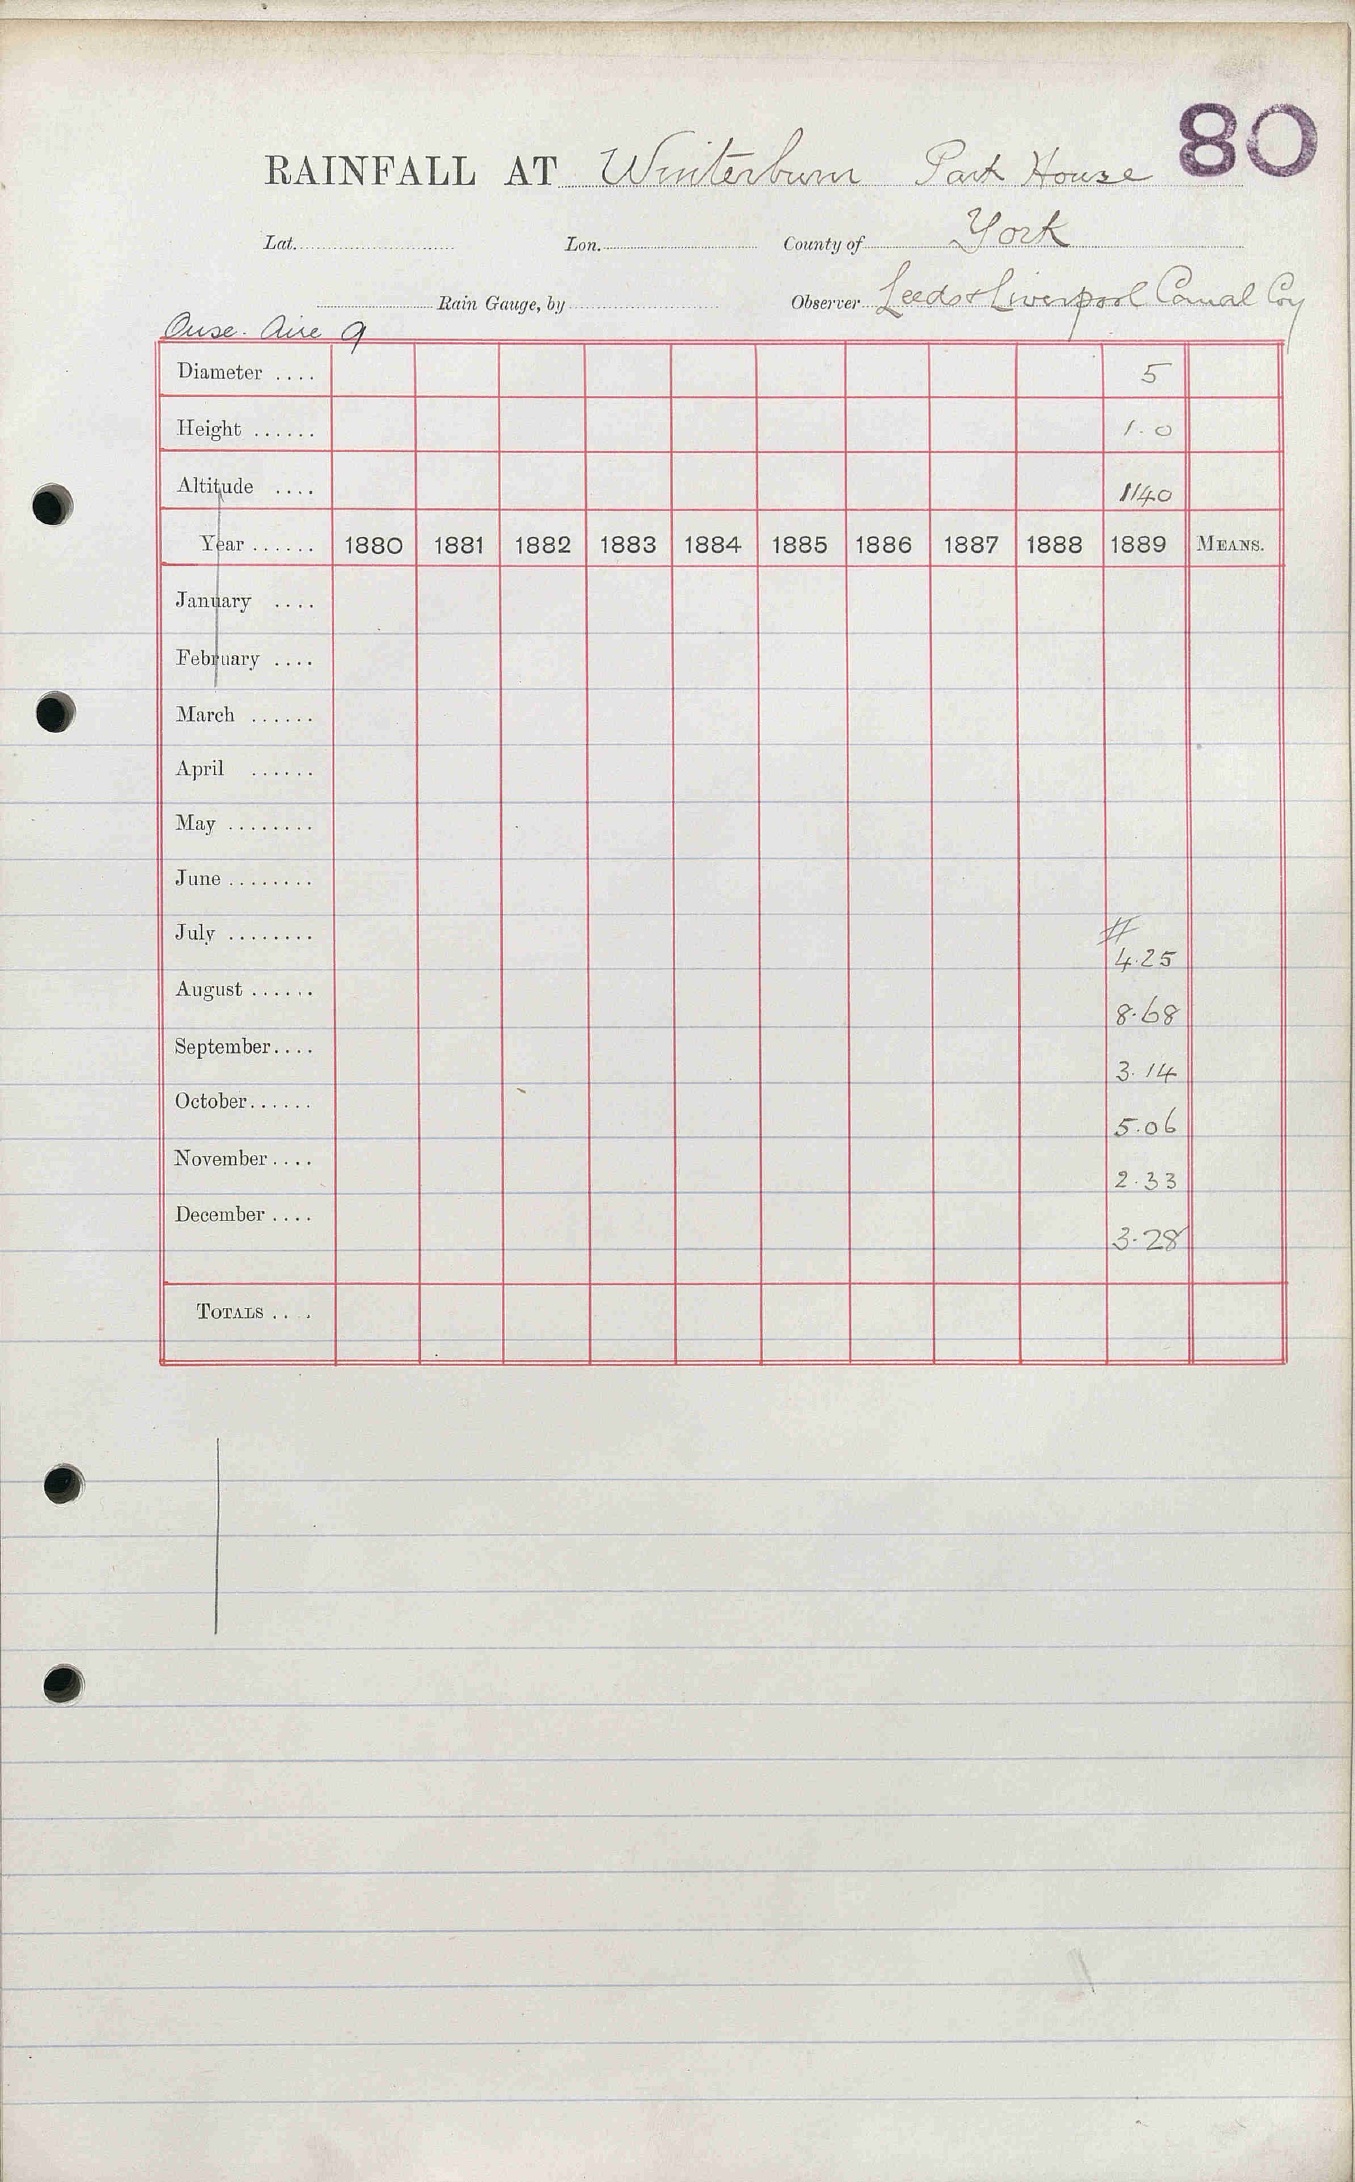 80
RAINFALL AT Winterburn Park House
Lat. Lon. County of York
Rain Gauge, by Observer Leeds & Liverpool Canal Coy
Ouse. Aire 9
Diameter .... 5
Height ...... 1.0
Altitude .... 1140
Year ...... 1880 1881 1882 1883 1884 1885 1886 1887 1888 1889 MEANS.
January ....
February ....
March ......
April ......
May ........
June ........
July ........ # 4.25
August ...... 8.68
September .... 3.14
October ...... 5.06
November .... 2.33
December .... 3.28
TOTALS ....